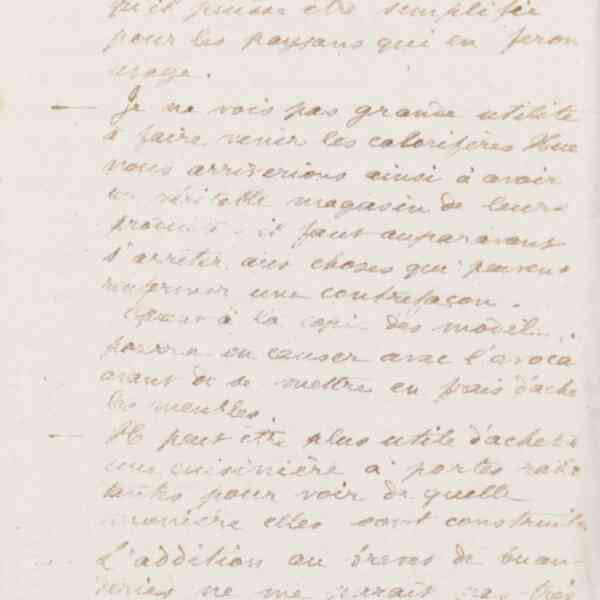 qu'il puisse être simplifié
pour les paysans qui en feron
usage.
— Je ne vois pas grande utilité
à faire venir les calorifères Hue
nous arriverions ainsi à avoir
un véritable magasin de leurs
produits. il faut auparavant
s'arrêter aux choses qui peuvent
renfermer une contrefaçon.
Quant à la copie des modèl
pourra en causer avec l'avoca
avant de se mettre en frais d'ache
les meubles.
— Il peut être plus utile d'achete
une cuisinière à portes
pour voir de quelle
manière elles sont construite
L'addition au brevet de buan
deries ne me paraît pas très